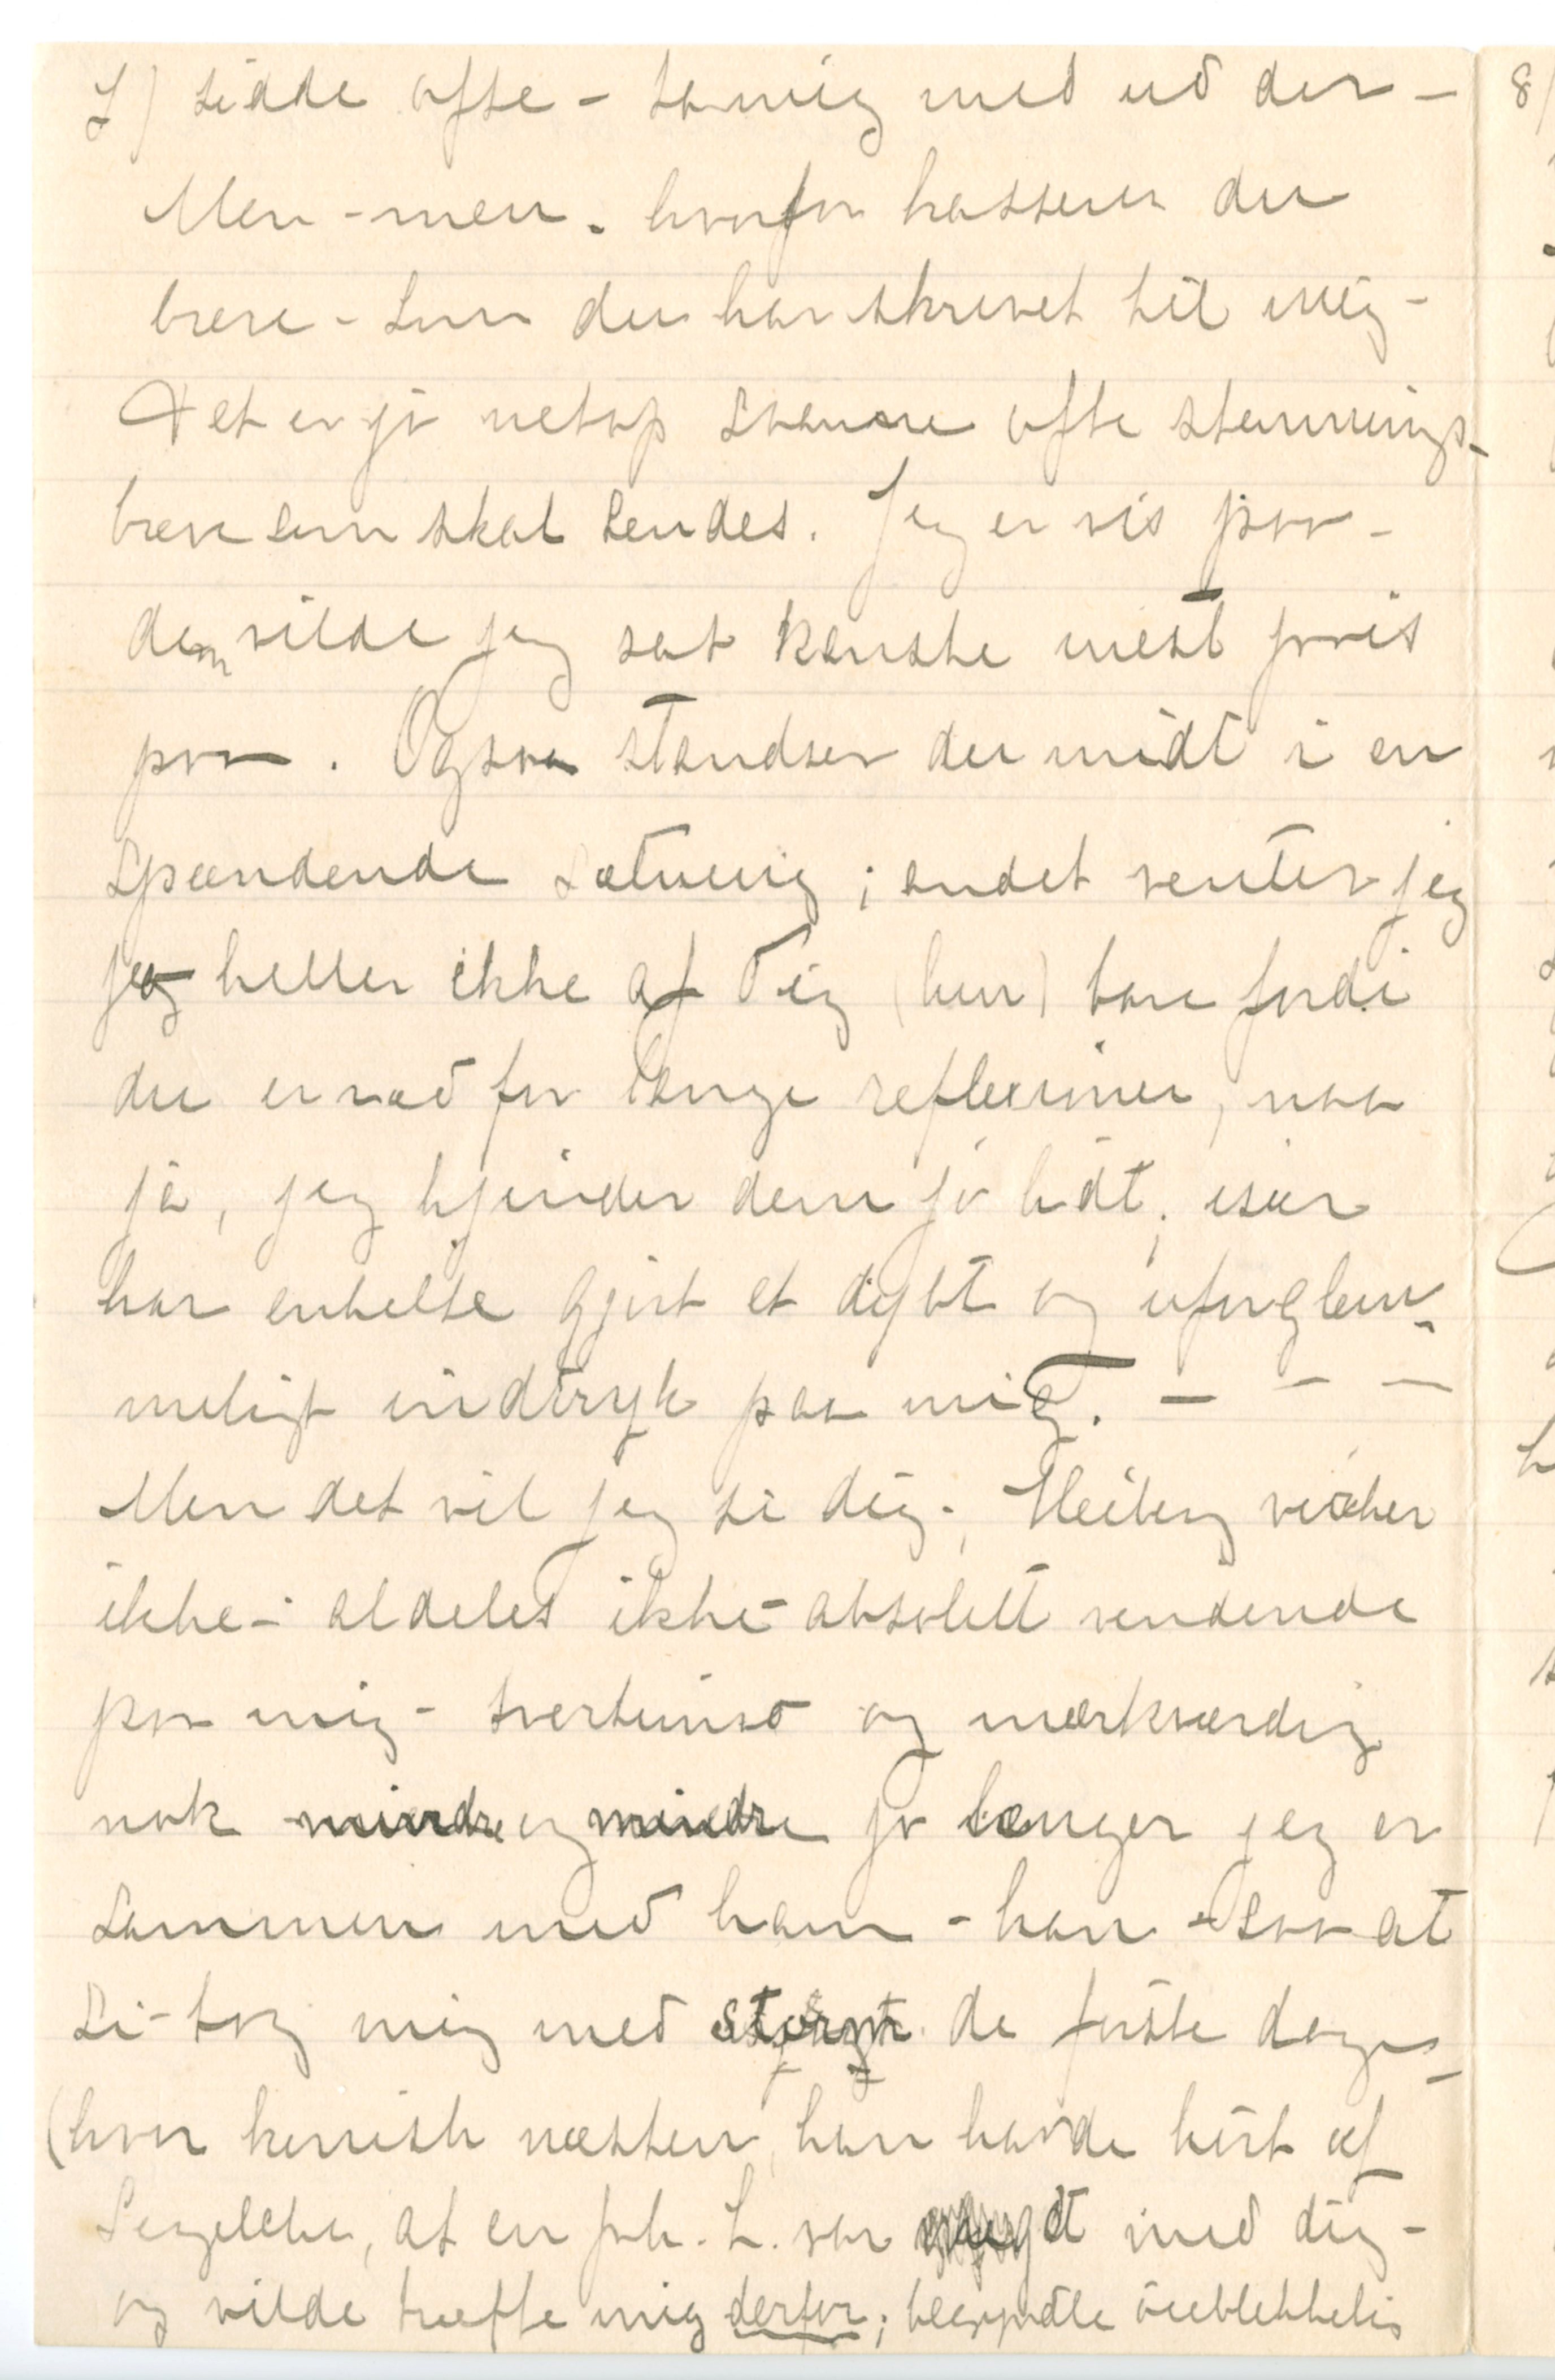 7) sidde ofte – ta mig med ud der –
Men – men. hvorfor kasserer du
breve – som du har skrevet til mig –
Det er jo netop saanne ofte stemnings-
breve som skal sendes. Jeg er vis paa –
dem vilde jeg sat kanske mest pris
paa. Og saa standser du midt i en
spændende sætning; andet venter jeg
jo heller ikke af Dig (hm) bare fordi
du er ræd for lange reflexioner, naa
ja, jeg kjender dem jo lidt; især
har enkelte gjort et dybt og uforglem-
meligt indtryk paa mig. – – –
Men det vil jeg si dig; Heiberg virker
ikke – aldeles ikke – absolutt vendende
paa mig – tvertimod og mærkværdig
nok mindre og mindre jo længer jeg er
sammen med ham – han – saa at
si – tog mig med storm de første dage –
(hvor komisk næsten, han havde hørt af
Segelcke, at en frk. L. var med dig –
og vilde træffe mig derfor; begyndte øieblikkelig
8)